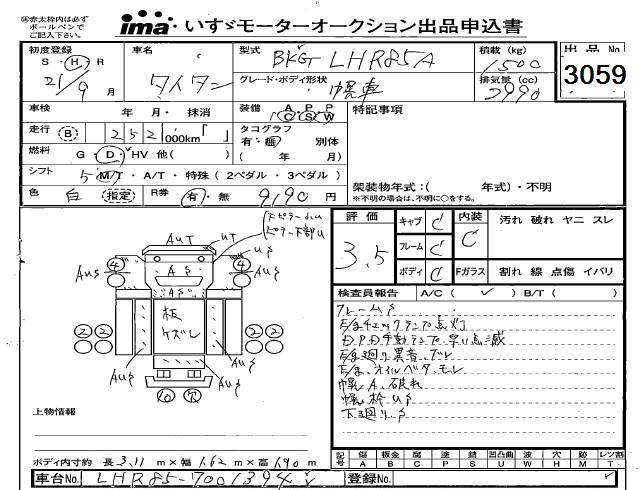 ㊟赤太枠内は必ず
ボールペンで
ご記入下さい。
ima いすゞモーターオークション出品申込書
初度登録 車名 型式 BKG- LHR85A 積載(kg) 1500 出品No
S・H・R 21/9月 タイタン グレード・ボディ形状 幌車 排気量(cc) 2990 3059
車検 年 月・ 抹消 装備 A・P・P C S W 特記事項
走行 B 252,000km「 」 タコグラフ
有・無 別体
燃料 G・D・HV 他( ) ( 年 月)
シフト 5 M/T・A/T・特殊(2ペダル・3ペダル) 架装物年式:( 年式)・不明
色 白 指定 R券 有・無 9190円 ※不明の場合は、不明に○をする。
評価 3.5 キャブ C 内装 C 汚れ 破れ ヤニ スレ
フレーム C
ボディ C Fガラス 割れ 線 点傷 イバリ
AUT UT US
4 AS 4
AUS AS AUS
板
ケズレ
2 2 2 2
AUS AUS
10 欠
検査員報告 A/C( ✓ ) B/T( )
フレームS
E/gチェックランプ点灯
DPD手動ランプ早い点滅
E/g廻り異音、ブレ
E/g、オイルベタ、モレ
幌A、破れ
幌枠US
下廻りS
上物情報
ボディ内寸約 長 3.11 m×幅 1.62 m×高 1.90 m
記号 傷 A 板金 B 腐 C 塗 P 錆 S 凹凸曲 U 波 W 穴 H 跡 M レンズ割
車台No. LHR85-7001394 登録No.